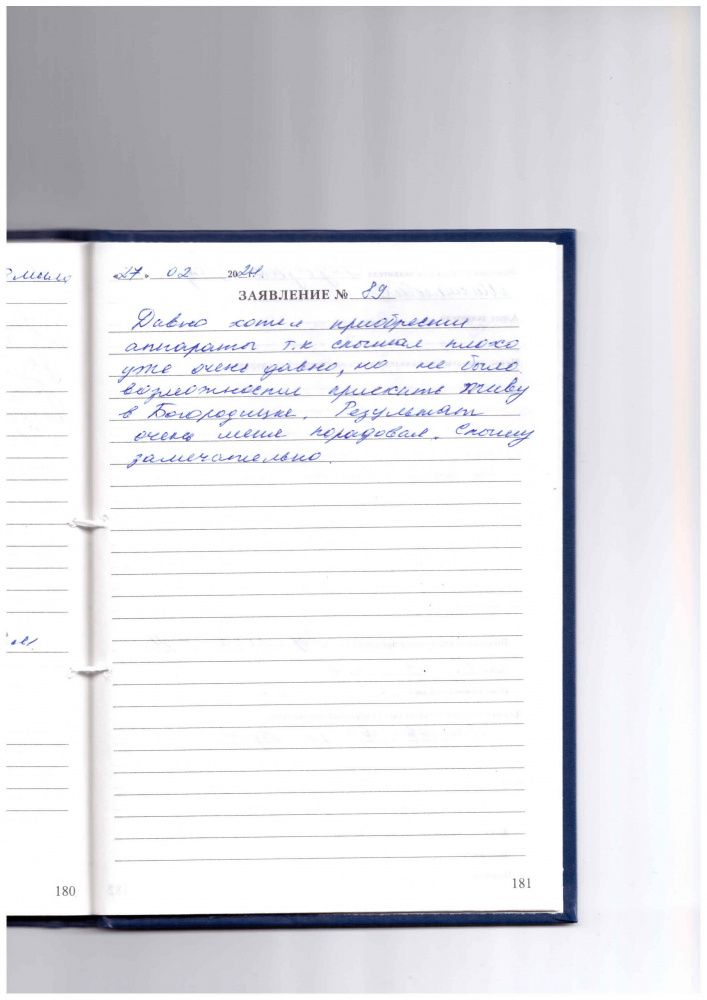 «27» 02 2021.
ЗАЯВЛЕНИЕ № 89
Давно хотел приобрести
аппараты т.к слышал плохо
уже очень давно, но не было
возможности приехать живу
в Богородицке. Результат
очень меня порадовал. Слышу
замечательно.
180
181